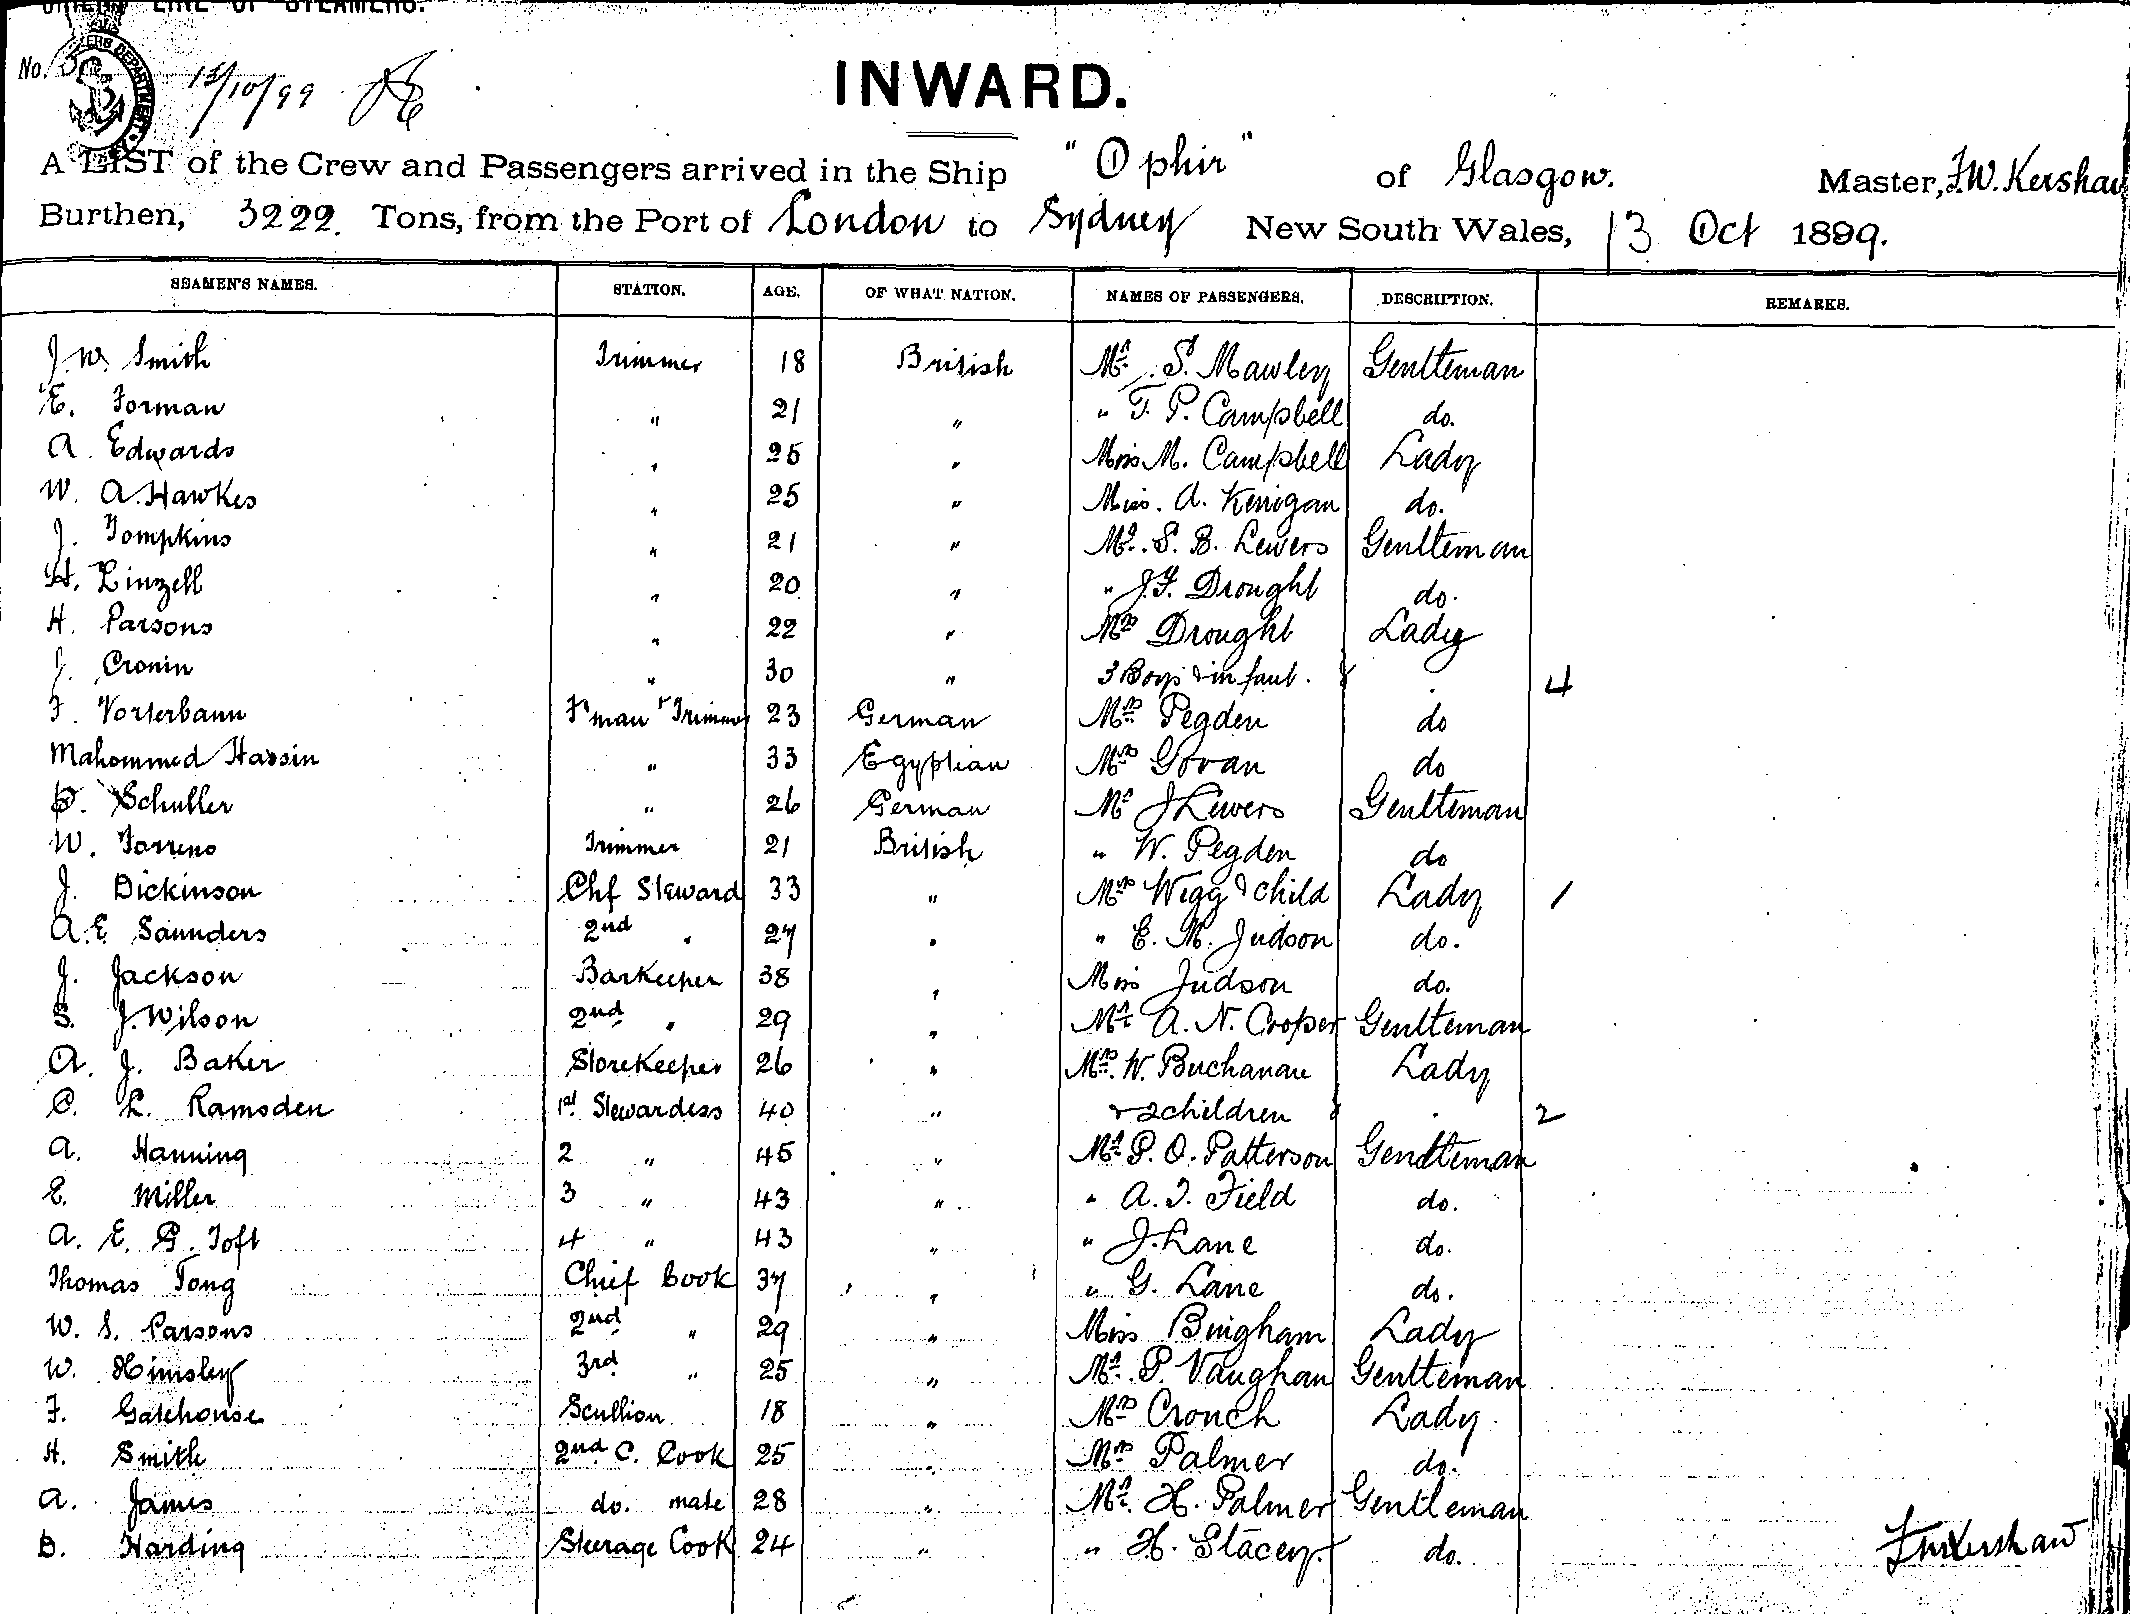 ORIENT LINE OF STEAMERS.
No. 5
13/10/99
INWARD.
A LIST of the Crew and Passengers arrived in the Ship "Ophir" of Glasgow. Master, F.W. Kershaw
Burthen, 3222. Tons, from the Port of London to Sydney New South Wales, 13 Oct 1899.
SEAMEN'S NAMES. STATION. AGE. OF WHAT NATION. NAMES OF PASSENGERS. DESCRIPTION. REMARKS.
J. W. Smith Trimmer 18 British Mr. S. Mawley Gentleman
E. Forman " 21 " " T. P. Campbell do.
A. Edwards " 25 " Miss M. Campbell Lady
W. A. Hawkes " 25 " Miss. A. Kerrigan do.
J. Tompkins " 21 " Mr. S. B. Lewers Gentleman
H. Linzell " 20 " " J. F. Drought do.
H. Parsons " 22 " Mrs Drought Lady
J. Cronin " 30 " 3 Boys & infant. 4
F. Vorterbann F'man & Trimmer 23 German Mrs Pegden do
Mahommed Hassin " 33 Egyptian Mrs Govan do
Schuller " 26 German Mr J Lewers Gentleman
W. Torreno Trimmer 21 British " W. Pegden do
J. Dickinson Chf Steward 33 " Mrs Wigg & child Lady 1
A. E. Saunders 2nd " 27 " " E. M. Judson do.
J. Jackson Barkeeper 38 " Miss Judson do.
S. J. Wilson 2nd " 29 " Mr A. N. Cooper Gentleman
A. J. Baker Storekeeper 26 " Mrs. W. Buchanan Lady
C. L. Ramsden 1st Stewardess 40 " & 2 children 2
A. Hanning 2 " 45 " Mr P. O. Patterson Gentleman
E. Miller 3 " 43 " " A. J. Field do.
A. E. B. Toft 4 " 43 " " J. Lane do.
Thomas Tong Chief Cook 37 " " G. Lane do.
W. S. Parsons 2nd " 29 " Miss Bingham Lady
W. Himsley 3rd " 25 " Mr. P. Vaughan Gentleman
F. Gatehouse Scullion 18 " Mrs Crouch Lady
H. Smith 2nd C. Cook 25 " Mrs Palmer do.
A. James do. mate 28 " Mr. H. Palmer Gentleman
B. Harding Steerage Cook 24 " " H. Stacey. do.
F W Kershaw